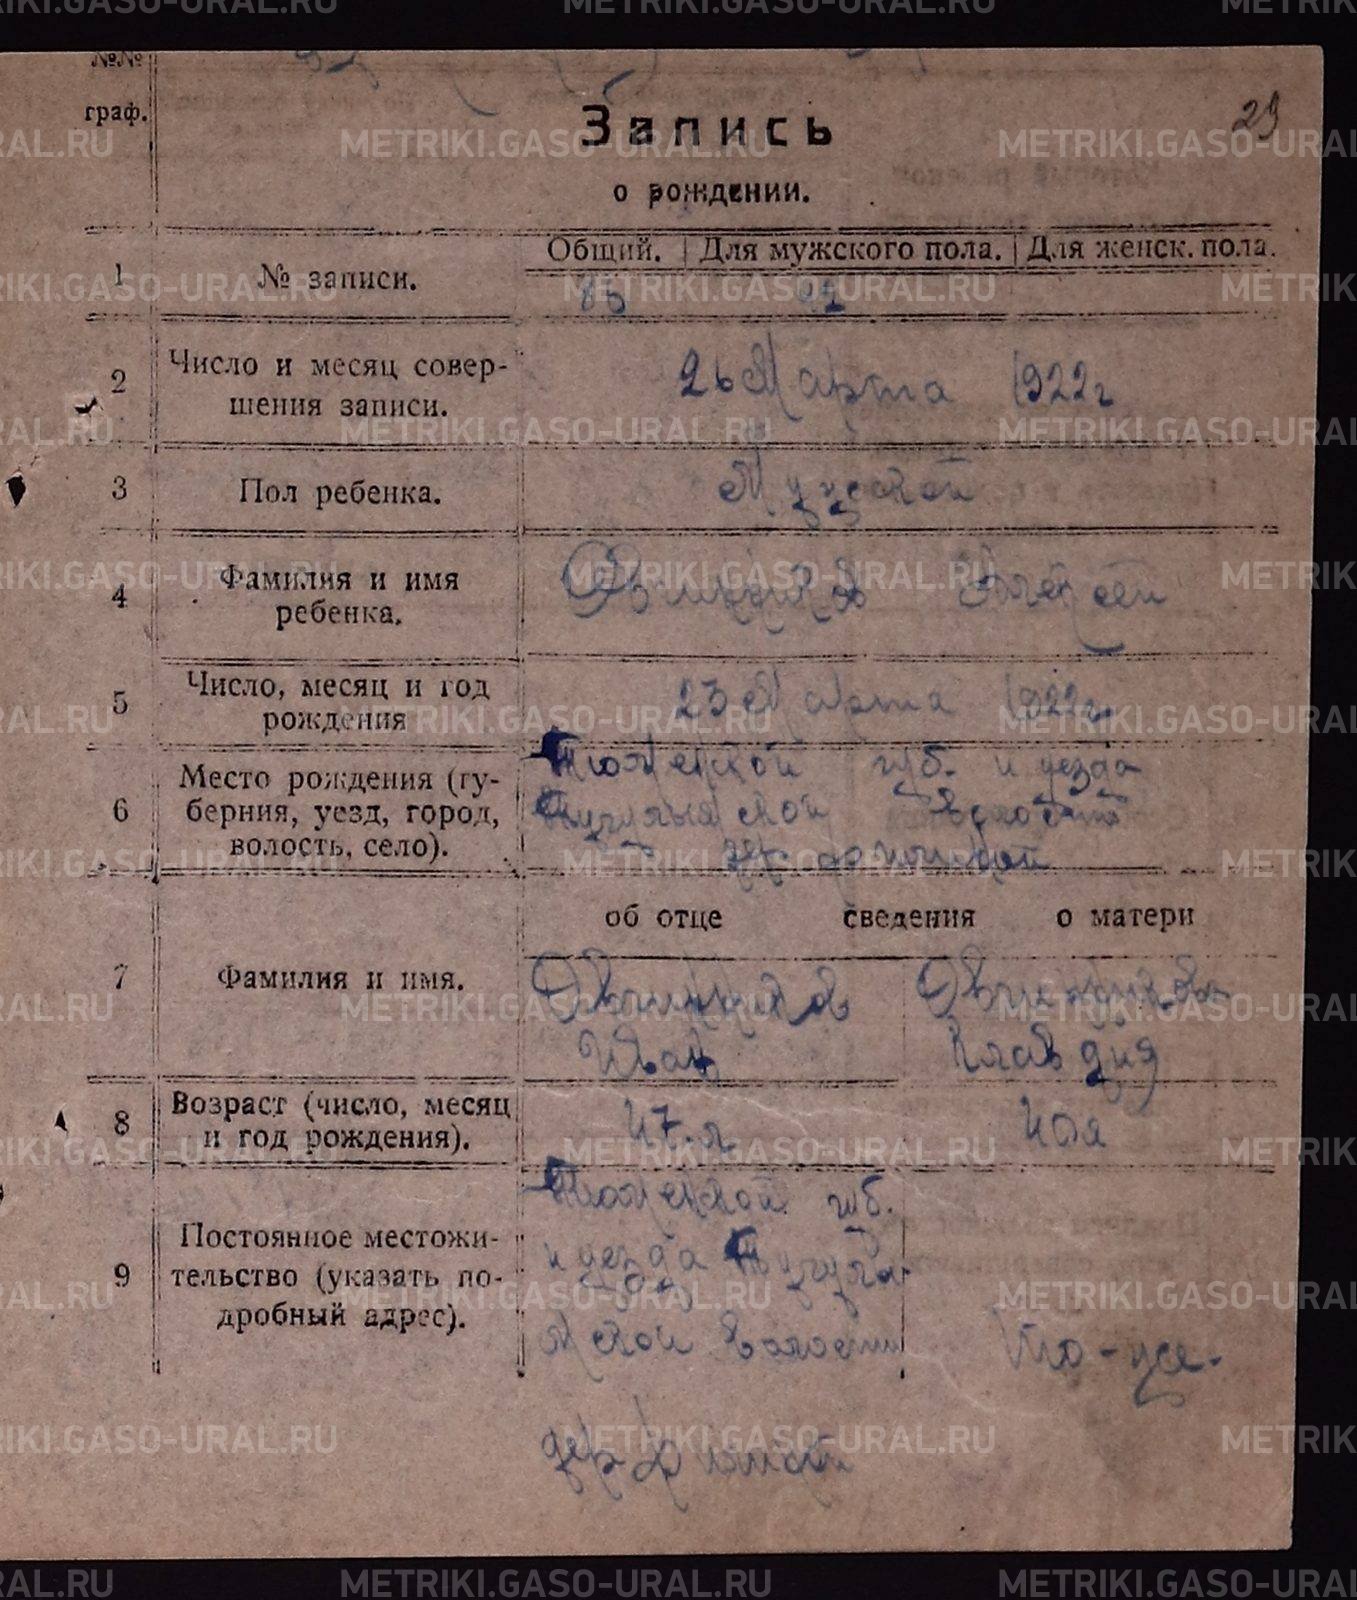 №№
граф.
29
Запись
о рождении.
1
№ записи.
Общий. Для мужского пола. Для женск. пола.
85
2
Число и месяц совер-
шения записи.
26 Марта 1922 г
3
Пол ребенка.
Мужской
4
Фамилия и имя
ребенка.
Овчинников Алексей
5
Число, месяц и год
рождения
23 Марта 1922 г.
6
Место рождения (гу-
берния, уезд, город,
волость, село).
Тюменской губ. и уезда
Тугулымской волости
дер.
об отце сведения о матери
7
Фамилия и имя.
Овчинников
Иван
Овчинникова
Клавдия
8
Возраст (число, месяц
и год рождения).
47-л
40л
9
Постоянное местожи-
тельство (указать по-
дробный адрес).
Тюменской губ.
и уезда Тугулы-
мской волости
дер
То-же.
METRIKI.GASO-URAL.RU